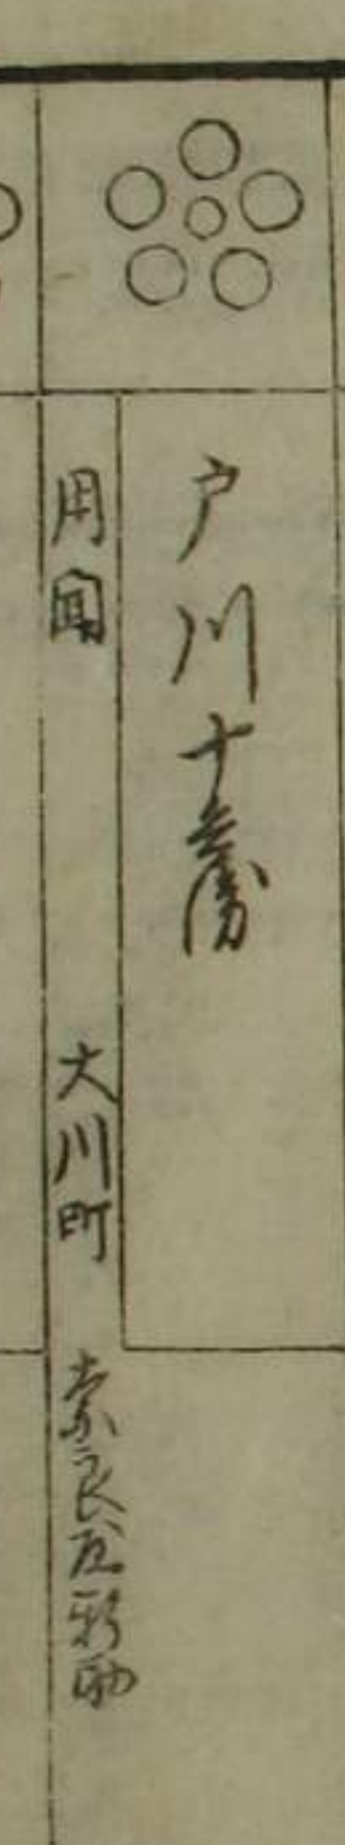 戸川十兵衛
用聞 大川町 奈良屋新助